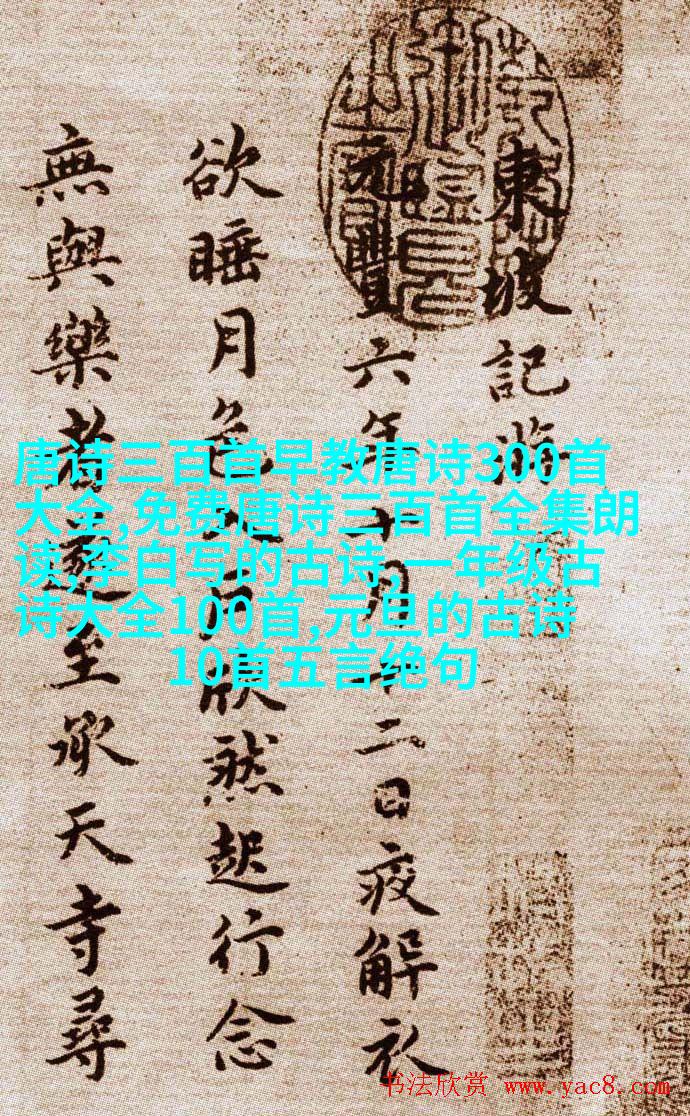 東坡記游
元豐六年十月十二日夜解衣
欲睡月色入戶欣然起行念
無與樂者遂至承天寺尋
唐诗三百首早教唐诗300首
大全,免费唐诗三百首全集朗
读,李白写的古诗,一年级古
诗大全100首,元旦的古诗
10首五言绝句
书法欣赏 www.yac8.com